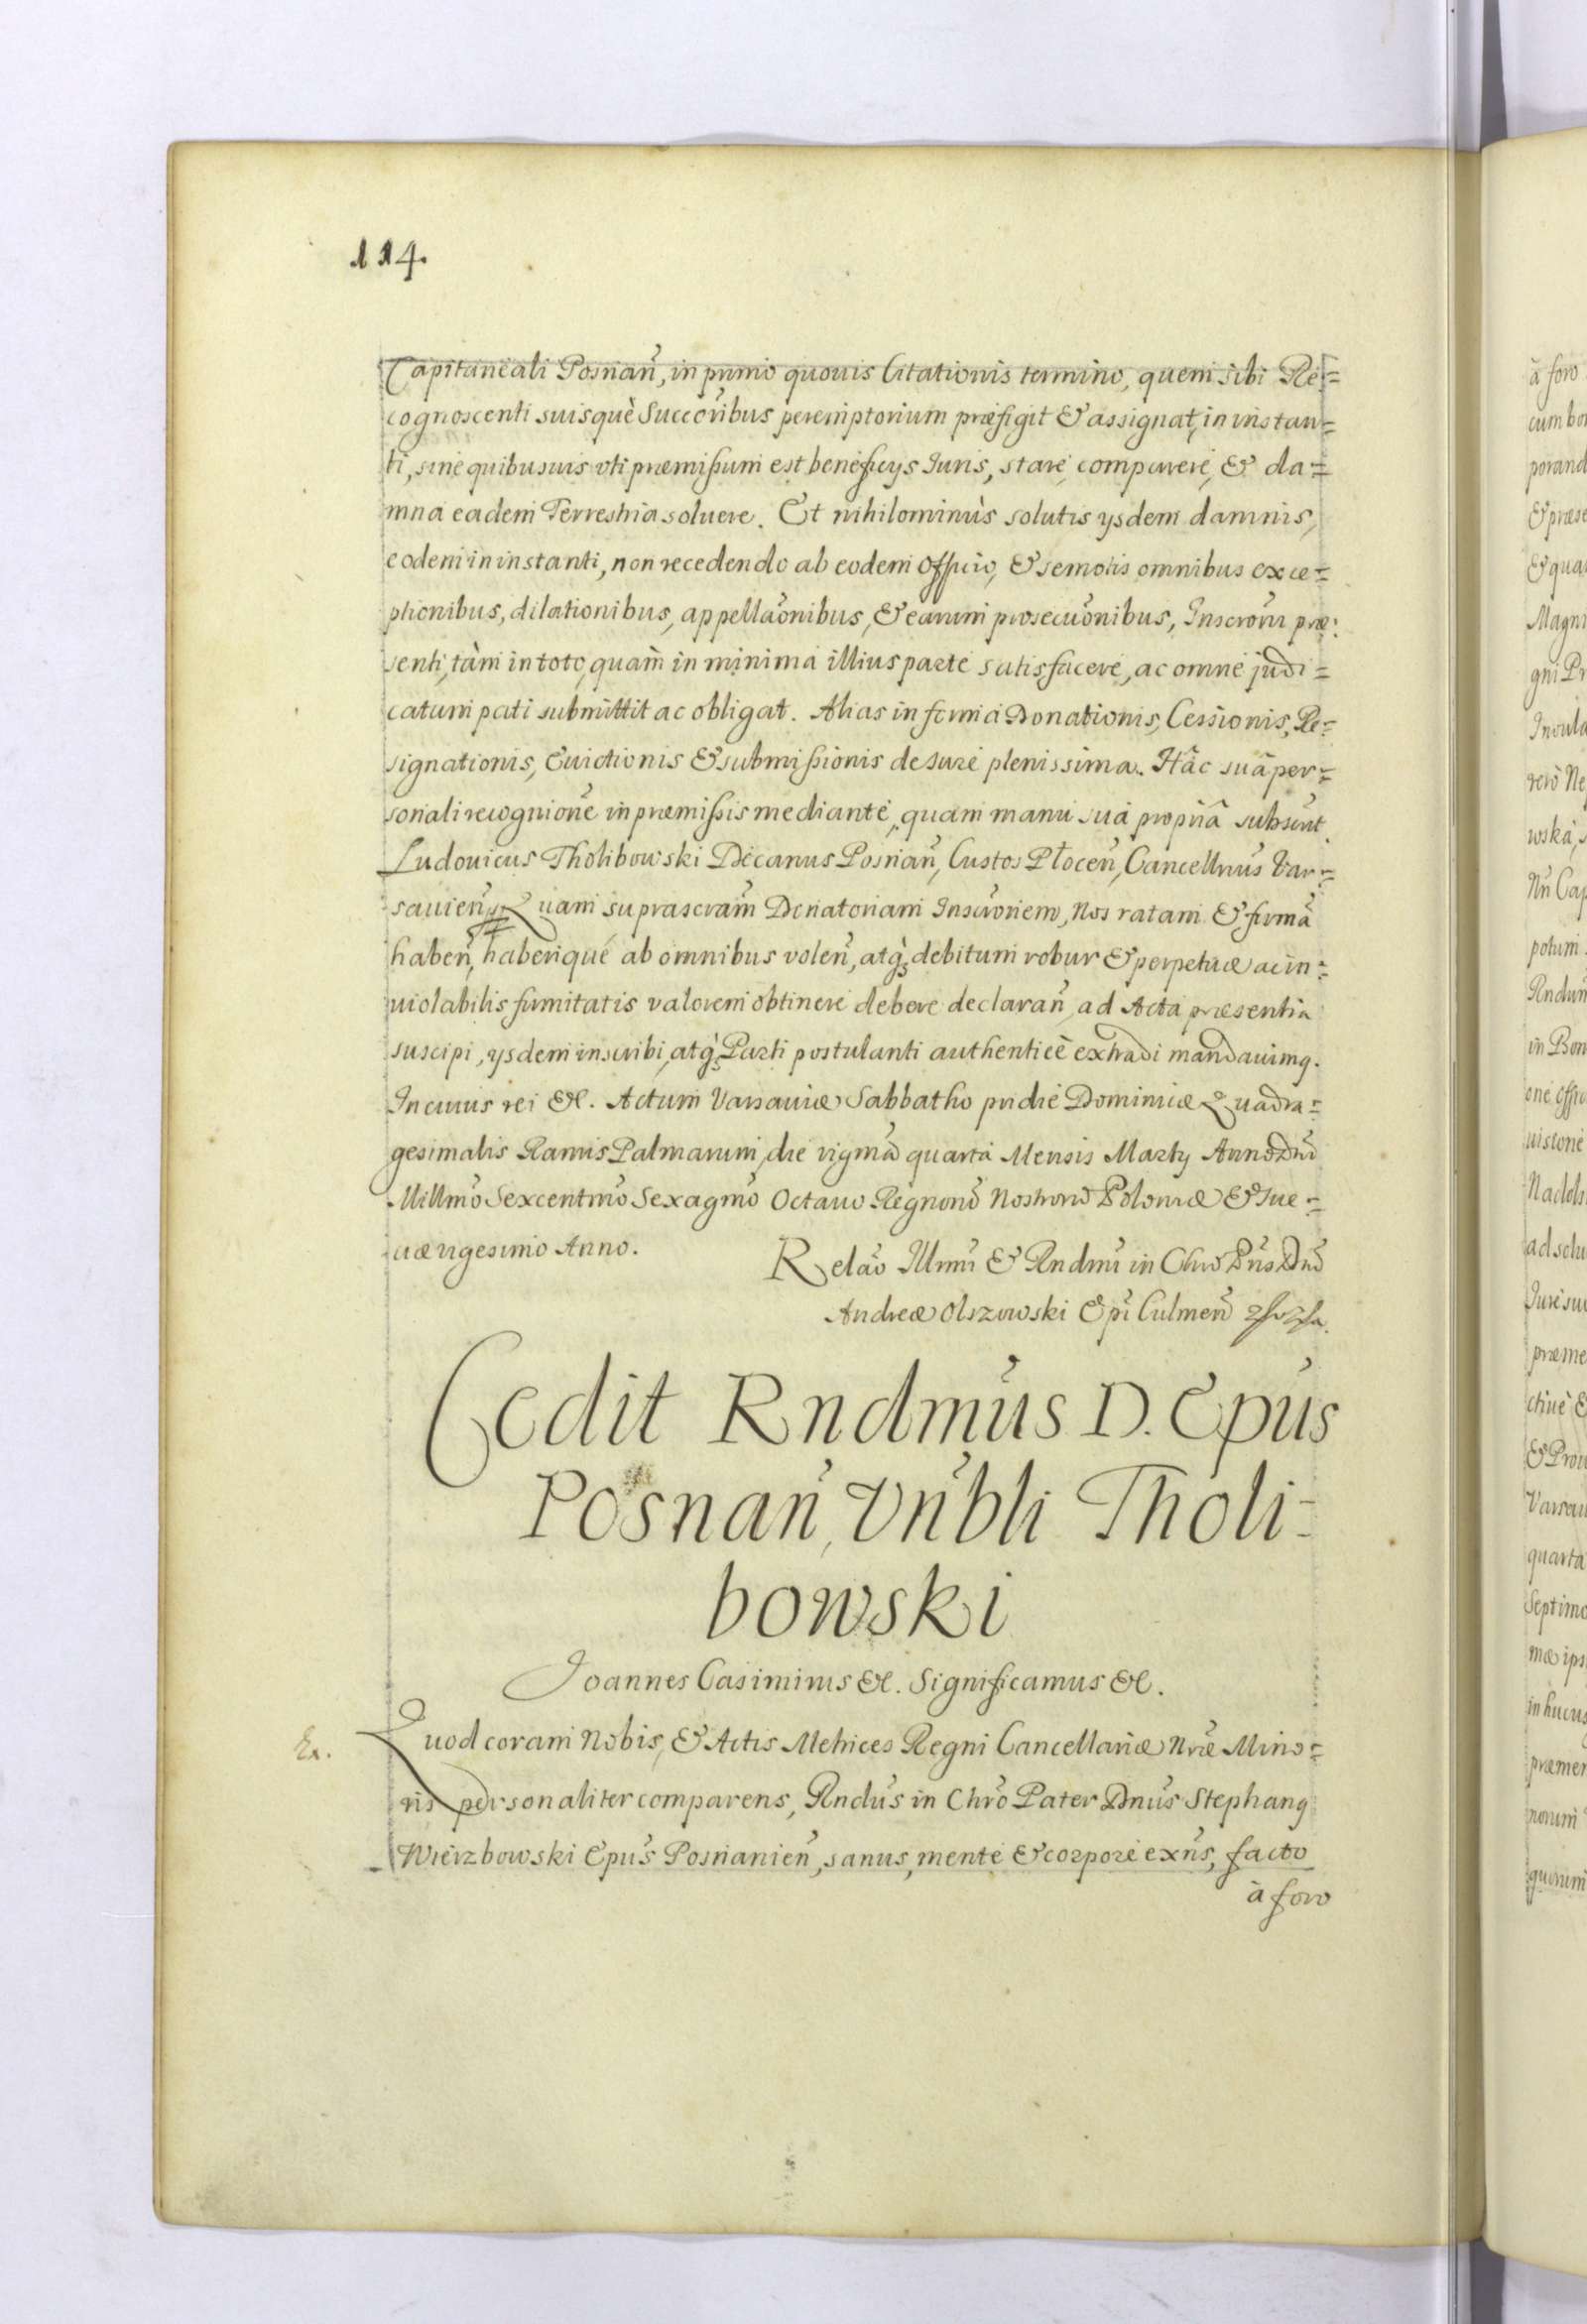 114.
Capitaneali Posnan̄, in primo quouis Citationis termino, quem sibi Re=
cognoscenti suisquè Succōribus peremptorium præfigit & assignat, in instan=
ti, sine quibusuis vti præmißum est beneficys Juris, stare, comparere, & da=
mna eadem Terrestria soluere. Et nihilominùs solutis ysdem damnis,
eodem in instanti, non recedendo ab eodem Officio, & semotis omnibus exce=
ptionibus, dilationibus, appellaōnibus, & earum prosecuōnibus, Inscrōni præ:
senti, tàm in toto, quam̀ in minima illius parte satisfacere, ac omne judi=
catum pati submittit ac obligat. Alias in forma Donationis, Cessionis, Re=
signationis, Euictionis & submißionis de Iure plenissima. Hâc suâ per=
sonali recognione in præmißis mediante, quam manu suâ propriâ subscrit
Ludouicus Tholibowski Decanus Posnan̄, Custos Płocen̄, Cancellrius Var=
sauien̄. Quam suprascram̄ Donatoriam Inscrōnem, Nos ratam & firmā
haben̄, haberiqué ab omnibus volen̄, atq̀ȝ debitum robur & perpetuæ ac in=
uiolabilis firmitatis valorem obtinere debere declaran̄, ad Acta præsentia
suscipi, ysdem inscribi, atq̀ȝ Parti postulanti authenticè extradi mandauimꝯ.
In cuius rei &c. Actum Varsauiæ Sabbatho pridie Dominicæ Quadra=
gesimalis Ramis Palmarum, die vigmā quarta Mensis Marty Anno Dnī
Millmō Sexcentmō Sexagmō Octauo Regnorū Nostrorū Poloniæ & Sue=
uæ vigesimo Anno.
Relaō Illmī & Rndmī in Chrō Prīs Dnī
Andreæ Olszowski Epī Culmen̄
Cedit Rndmūs D. Epūs
Posnan̄, Vrībli Tholi=
bowski
Joannes Casimirus &c. Significamus &c.
Ex.
Quod coram Nobis, & Actis Metrices Regni Cancellariæ Nrǣ Mino=
ris personaliter comparens, Rndūs in Chrō Pater Dnūs Stephanꝯ
Wierzbowski Epūs Posnanien̄, sanus, mente & corpore exn̄s, facto
à foro